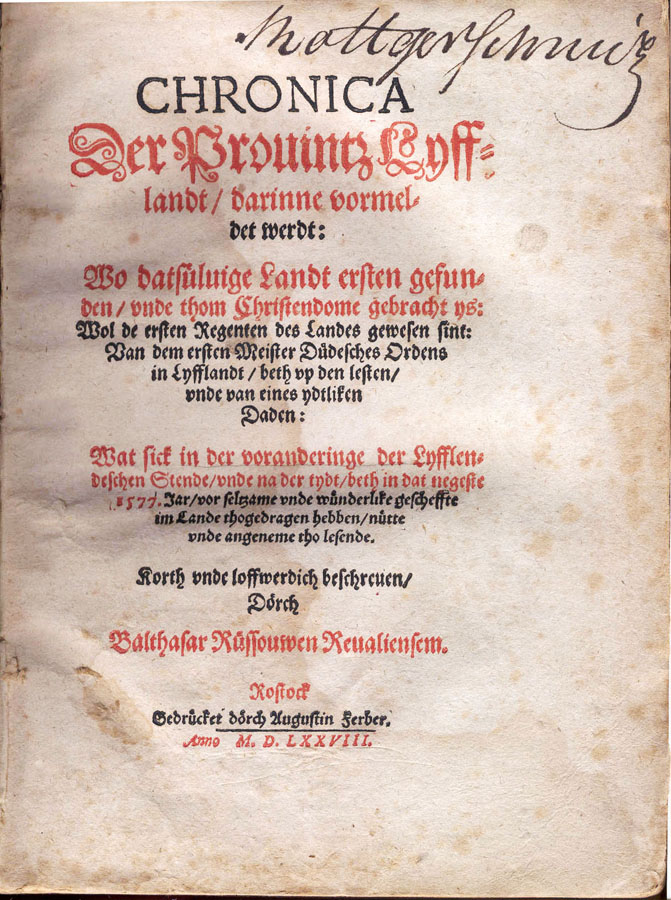 CHRONICA
Der Prouintz Lyff-
landt / darinne vormel-
det werdt:
Wo datsüluige Landt ersten gefun-
den / vnde thom Christendome gebracht ys:
Wol de ersten Regenten des Landes gewesen sint:
Van dem ersten Meister Düdesches Ordens
in Lyfflandt / beth vp den lesten /
vnde van eines ydtliken
Daden:
Wat sick in der voranderinge der Lyfflen-
deschen Stende / vnde na der tydt / beth in dat negeste
1577. Jar / vor seltzame vnde wünderlike gescheffte
im Lande thogedragen hebben / nütte
vnde angeneme tho lesende.
Korth vnde loffwerdich beschreuen /
Dörch
Balthasar Rüssouwen Reualiensem.
Rostock
Gedrücket dörch Augustin Ferber.
Anno M. D. LXXVIII.